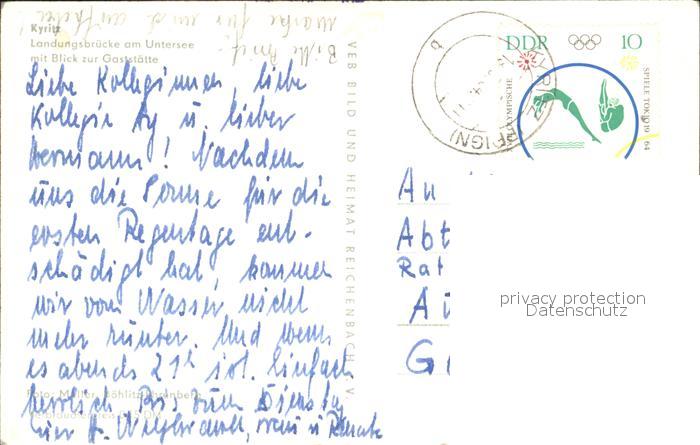 Kyritz
Landungsbrücke am Untersee
mit Blick zur Gaststätte
Bitte Brief-
marke für mich aufheben!
Liebe Kolleginnen, liebe
Kollegin Ky u. lieber
Hermann! Nachdem
uns die Sonne für die
ersten Regentage ent-
schädigt hat, kommen
wir vom Wasser nicht
mehr runter. Und wenn
es abends 21h ist. Einfach
herrlich. Bis zum Dienstag
Eure H. u Renate
Foto: Müller, Böhlitz-Ehrenberg
VEB BILD UND HEIMAT REICHENBACH i. V.
DDR 10
OLYMPISCHE
SPIELE TOKIO 19 64
An
Abt
Rat
A
G
privacy protection
Datenschutz